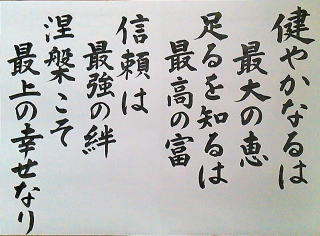 健やかなるは
最大の恵
足るを知るは
最高の富
信頼は
最強の絆
涅槃こそ
最上の幸せなり